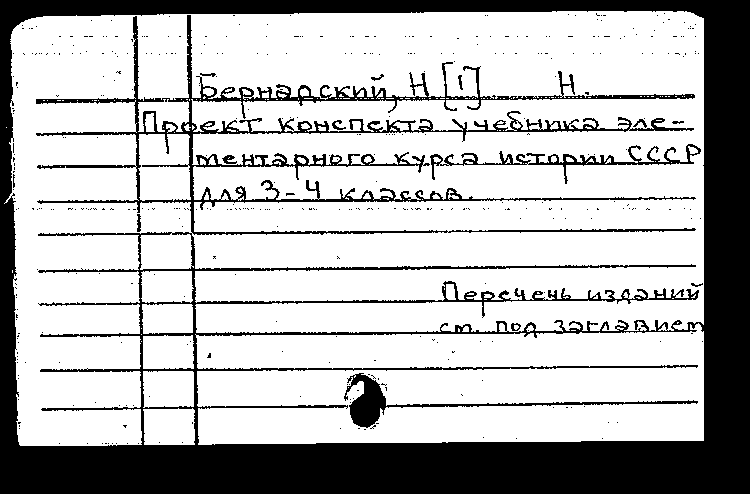 Бернадский, Н [1] Н.
Проект конспекта учебника эле-
ментарного курса истории СССР
для 3-4 классов.
Перечень изданий
см. под заглавием